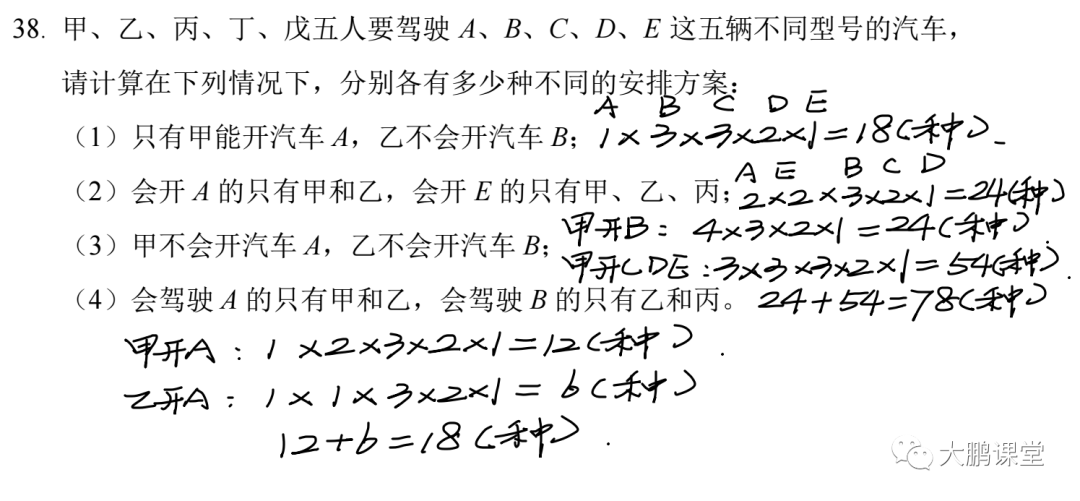 38. 甲、乙、丙、丁、戊五人要驾驶 A、B、C、D、E 这五辆不同型号的汽车，
请计算在下列情况下，分别各有多少种不同的安排方案：
A B C D E
（1）只有甲能开汽车 A，乙不会开汽车 B；1×3×3×2×1=18(种)
A E B C D
（2）会开 A 的只有甲和乙，会开 E 的只有甲、乙、丙；2×2×3×2×1=24(种)
甲开B：4×3×2×1=24(种)
（3）甲不会开汽车 A，乙不会开汽车 B；
甲开CDE：3×3×3×2×1=54(种).
（4）会驾驶 A 的只有甲和乙，会驾驶 B 的只有乙和丙。24+54=78(种)
甲开A：1×2×3×2×1=12(种).
乙开A：1×1×3×2×1=6(种)
12+6=18(种).
大鹏课堂